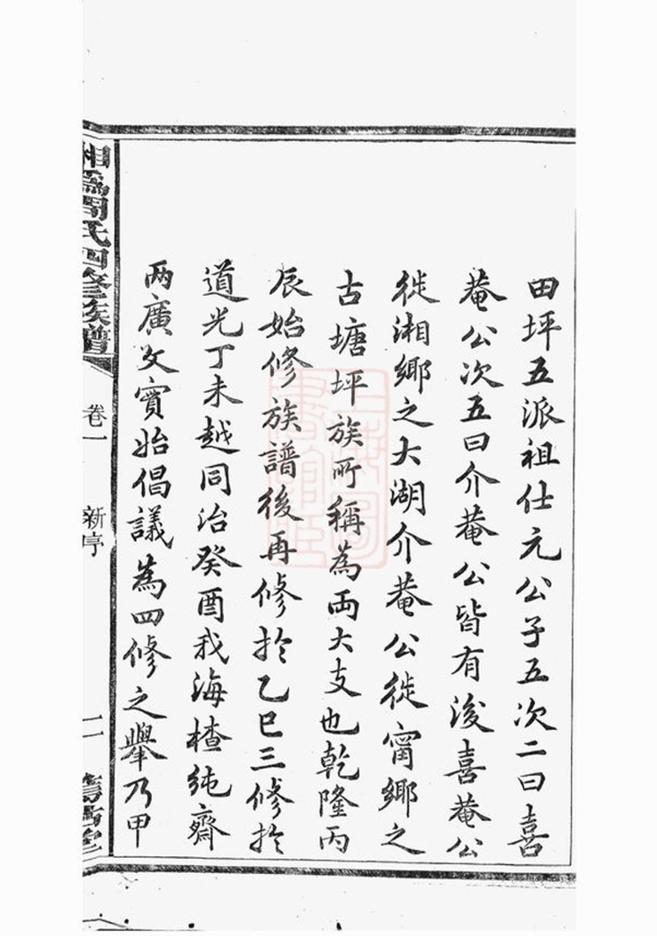 田坪五派祖仕元公子五次二曰喜
菴公次五曰介菴公皆有後喜菴公
徙湘鄉之大湖介菴公徙甯鄉之
古塘坪族所稱為両大支也乾隆丙
辰始修族譜後再修於乙巳三修於
道光丁未越同治癸酉我海槎純齋
两廣文實始倡議為四修之舉乃甲
氏四修族譜
卷一
新序
二